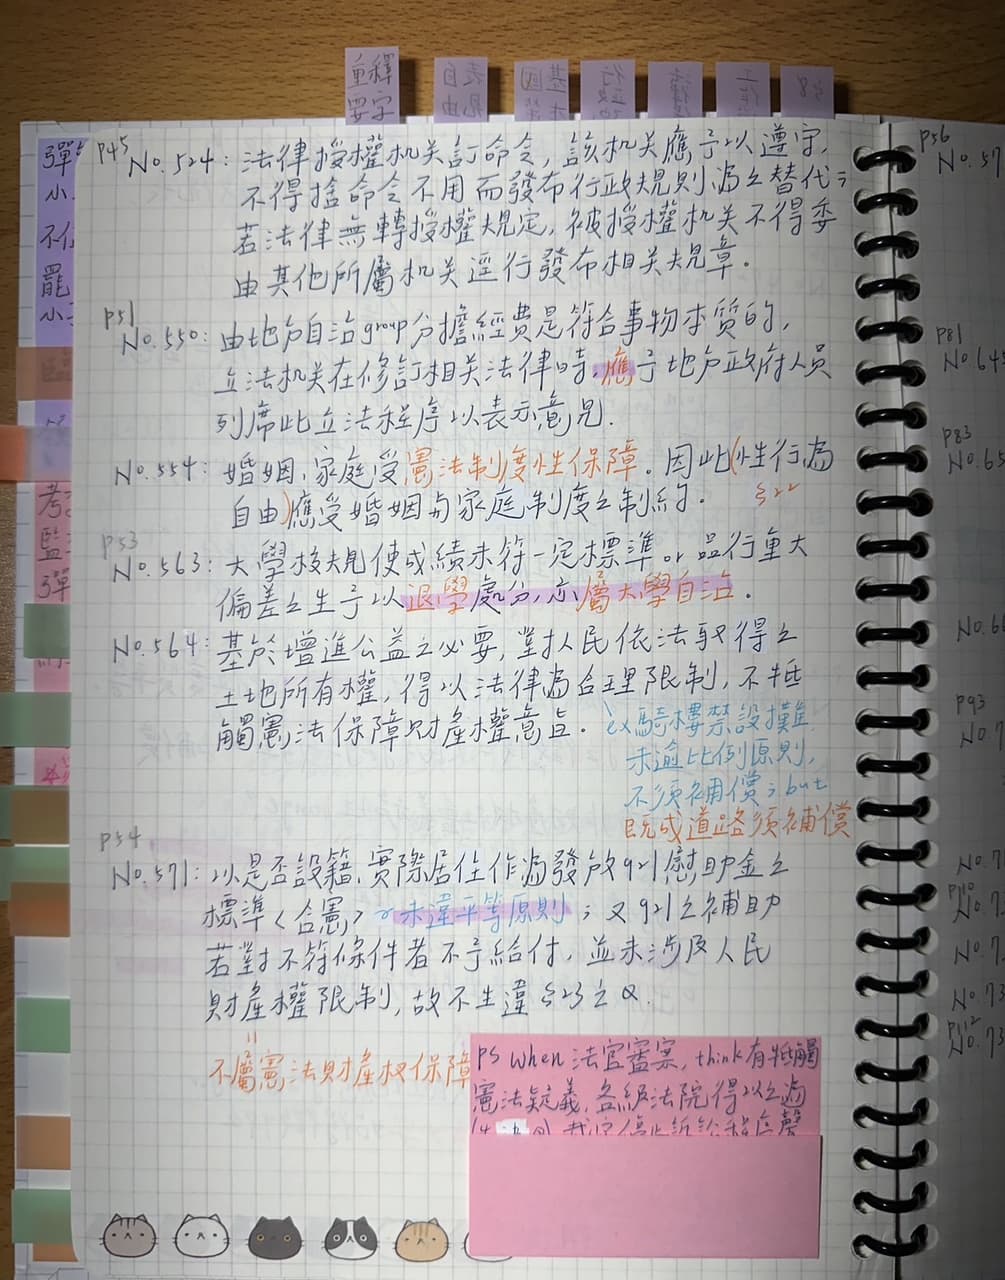 重釋
要字
表自
見由
基國
本策
工作
P45
No.524：法律授權机关訂命令，該机关應予以遵守，
不得捨命令不用而發布行政規則為之替代；
若法律無轉授權規定，被授權机关不得委
由其他所屬机关逕行發布相关規章。
P51
No.550：由地方自治group分擔經費是符合事物本質的，
立法机关在修訂相关法律時，應予地方政府人員
列席此立法程序以表示意見.
No.554：婚姻、家庭受憲法制度性保障。因此(性行為
自由)應受婚姻與家庭制度之制約。
§22
P53
No.563：大學校規使成績未符一定標準or品行重大
偏差之生予以退學處分，亦屬大學自治。
No.564：基於增進公益之必要，對人民依法取得之
土地所有權，得以法律為合理限制，不牴
觸憲法保障財產權意旨。
ex騎樓禁設攤
未逾比例原則，
不須補償；but
既成道路須補償
P54
No.571：以是否設籍、實際居住作為發放921慰助金之
標準〈合憲〉~未違平等原則；又921之補助
若對不符條件者不予給付，並未涉及人民
財產權限制，故不生違§23之Q.
=
不屬憲法財產权保障
PS when 法官審案，think有牴觸
憲法疑義，各級法院得以之為
裁定停止訴訟程序聲
彈
小
不
罷
小
考
監
彈
P56
No.57
P81
No.64
P83
No.65
No.6
P93
No.7
No.7
P110
No.7
No.7
No.73
P112
No.73